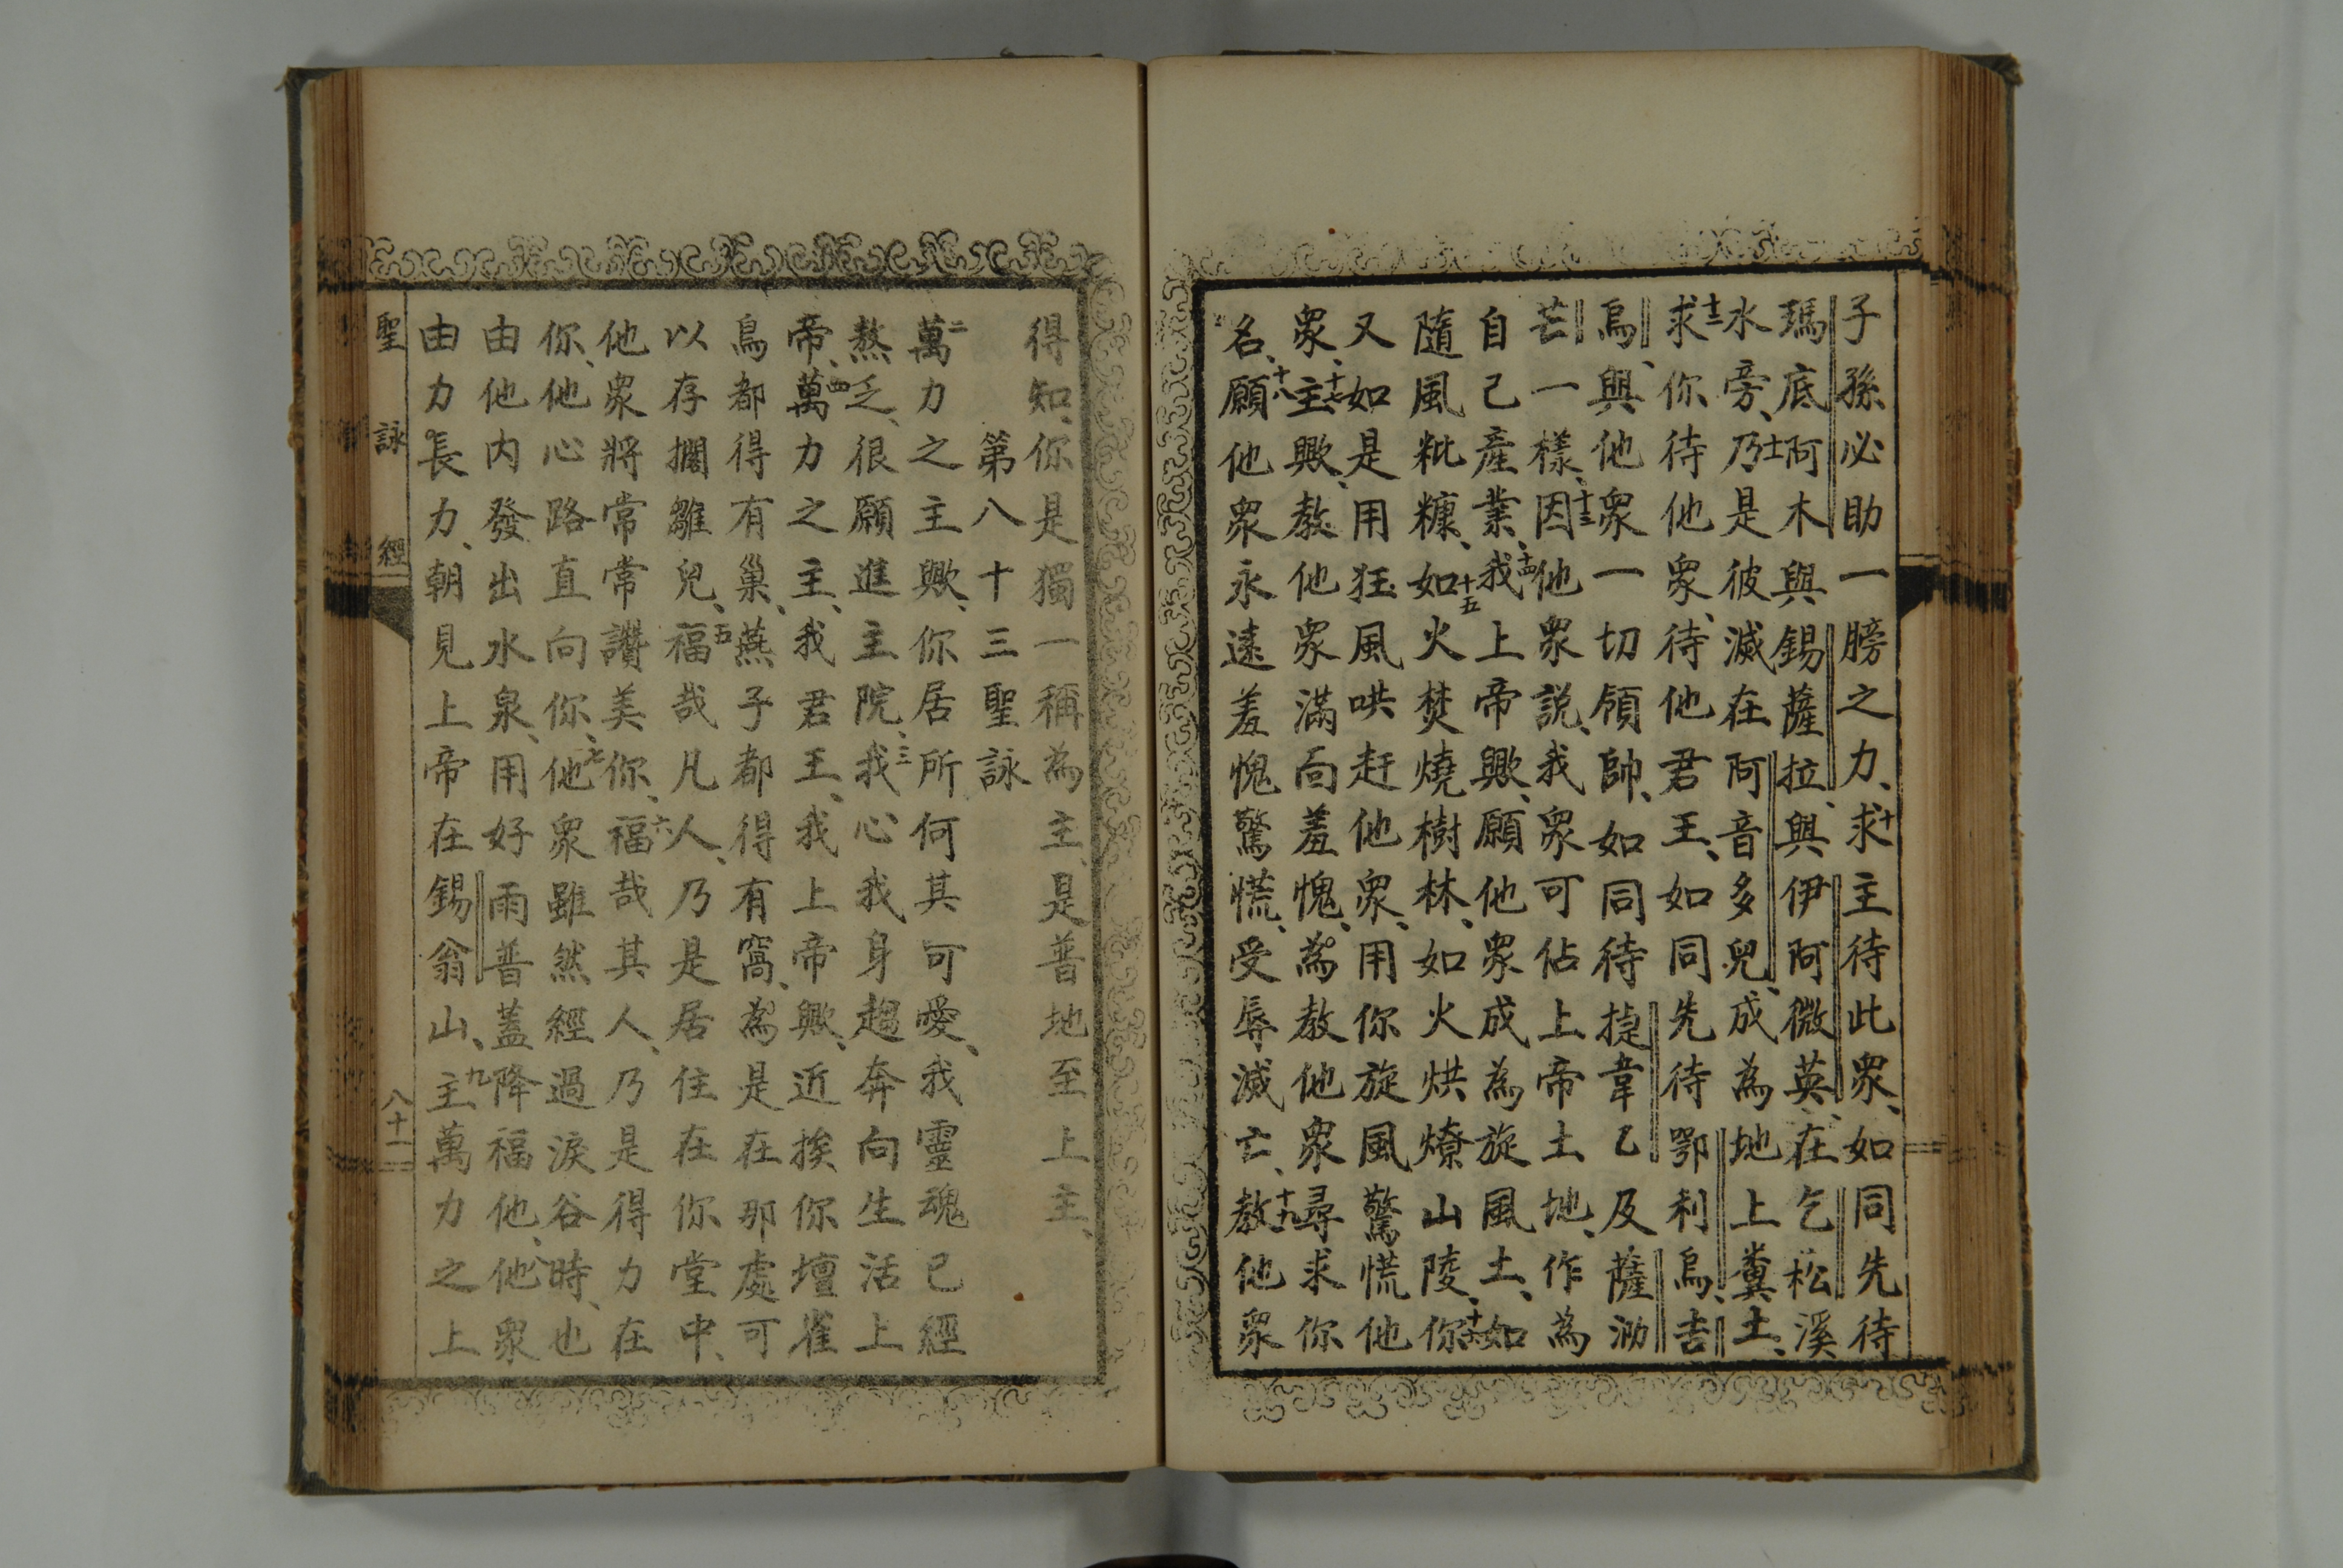 子孫必助一膀之力、十求主待此衆、如同先待
瑪底阿木與錫薩拉、與伊阿微英、在乞松溪
水旁、十一乃是彼滅在阿音多兒、成為地上糞土、
十二求你待他衆、待他君王、如同先待鄂利烏、吉
烏、與他衆一切領帥、如同待㨗韋乙及薩泐
芒一樣、十三因他衆説、我衆可佔上帝土地、作為
自己產業、十四我上帝歟、願他衆成為旋風土、如
隨風粃糠、十五如火焚燒樹林、如火烘燎山陵、十六你
又如是用狂風哄赶他衆、用你旋風驚慌他
衆、十七主歟、教他衆滿面羞愧、為教他衆尋求你
名、十八願他衆永遠羞愧驚慌、受辱滅亡、十九教他衆
得知、你是獨一稱為主、是普地至上主、
第八十三聖詠
二萬力之主歟、你居所何其可愛、我靈魂已經
熬乏、很願進主院、三我心我身趨奔向生活上
帝、四萬力之主、我君王、我上帝歟、近挨你壇雀
鳥都得有巢、燕子都得有窩、為是在那處可
以存擱雛兒、五福哉凡人、乃是居住在你堂中、
他衆將常常讚美你、六福哉其人、乃是得力在
你、他心路直向你、七他衆雖然經過淚谷時、也
由他内發出水泉、用好雨普蓋降福他、八他衆
由力長力、朝見上帝在錫翁山、九主萬力之上
聖詠經 八十一